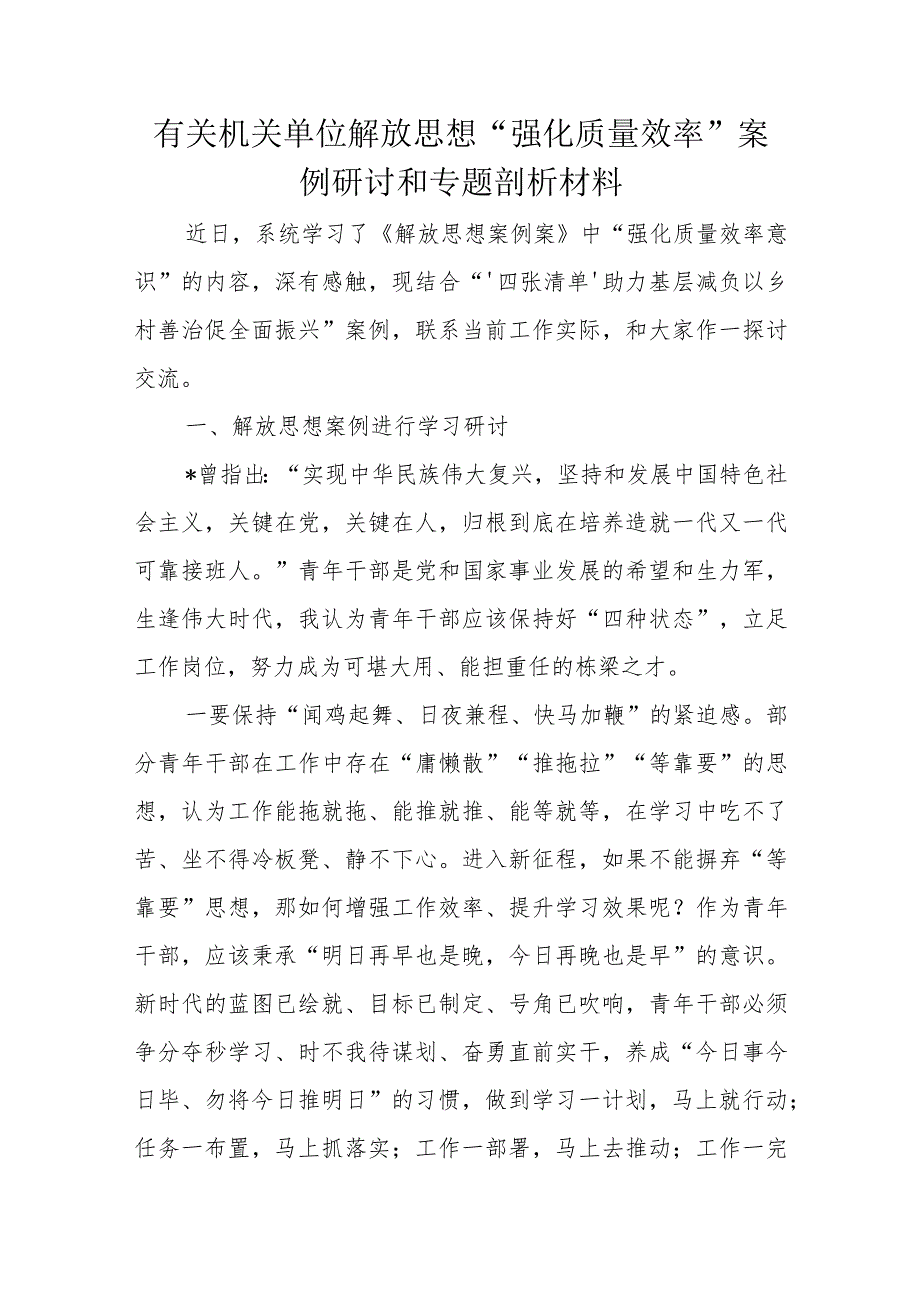 有关机关单位解放思想“强化质量效率”案
例研讨和专题剖析材料
近日，系统学习了《解放思想案例案》中“强化质量效率意
识”的内容，深有感触，现结合“'四张清单'助力基层减负以乡
村善治促全面振兴”案例，联系当前工作实际，和大家作一探讨
交流。
一、解放思想案例进行学习研讨
*曾指出：“实现中华民族伟大复兴，坚持和发展中国特色社
会主义，关键在党，关键在人，归根到底在培养造就一代又一代
可靠接班人。”青年干部是党和国家事业发展的希望和生力军，
生逢伟大时代，我认为青年干部应该保持好“四种状态”，立足
工作岗位，努力成为可堪大用、能担重任的栋梁之才。
一要保持“闻鸡起舞、日夜兼程、快马加鞭”的紧迫感。部
分青年干部在工作中存在“庸懒散”“推拖拉”“等靠要”的思
想，认为工作能拖就拖、能推就推、能等就等，在学习中吃不了
苦、坐不得冷板凳、静不下心。进入新征程，如果不能摒弃“等
靠要”思想，那如何增强工作效率、提升学习效果呢？作为青年
干部，应该秉承“明日再早也是晚，今日再晚也是早”的意识。
新时代的蓝图已绘就、目标已制定、号角已吹响，青年干部必须
争分夺秒学习、时不我待谋划、奋勇直前实干，养成“今日事今
日毕、勿将今日推明日”的习惯，做到学习一计划，马上就行动；
任务一布置，马上抓落实；工作一部署，马上去推动；工作一完